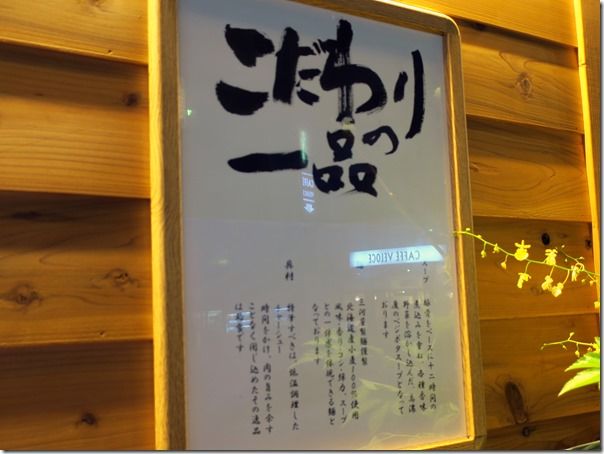 こだわりの
一品
CAFFE VELOCE
スープ
豚骨をベースに十二時間の
煮込みを重ね、各種香味
野菜を溶かし込んだ、高濃
度のベジポタスープとなって
おります
三河屋製麺謹製
北海道産小麦100%使用
風味・香り・コシ・スープ
との一体感を体現できる麺と
なっております
具材
特筆すべきは、低温調理した
チャーシュー
時間をかけ、肉の旨みを余す
ことなく閉じ込めたその逸品
は見事です